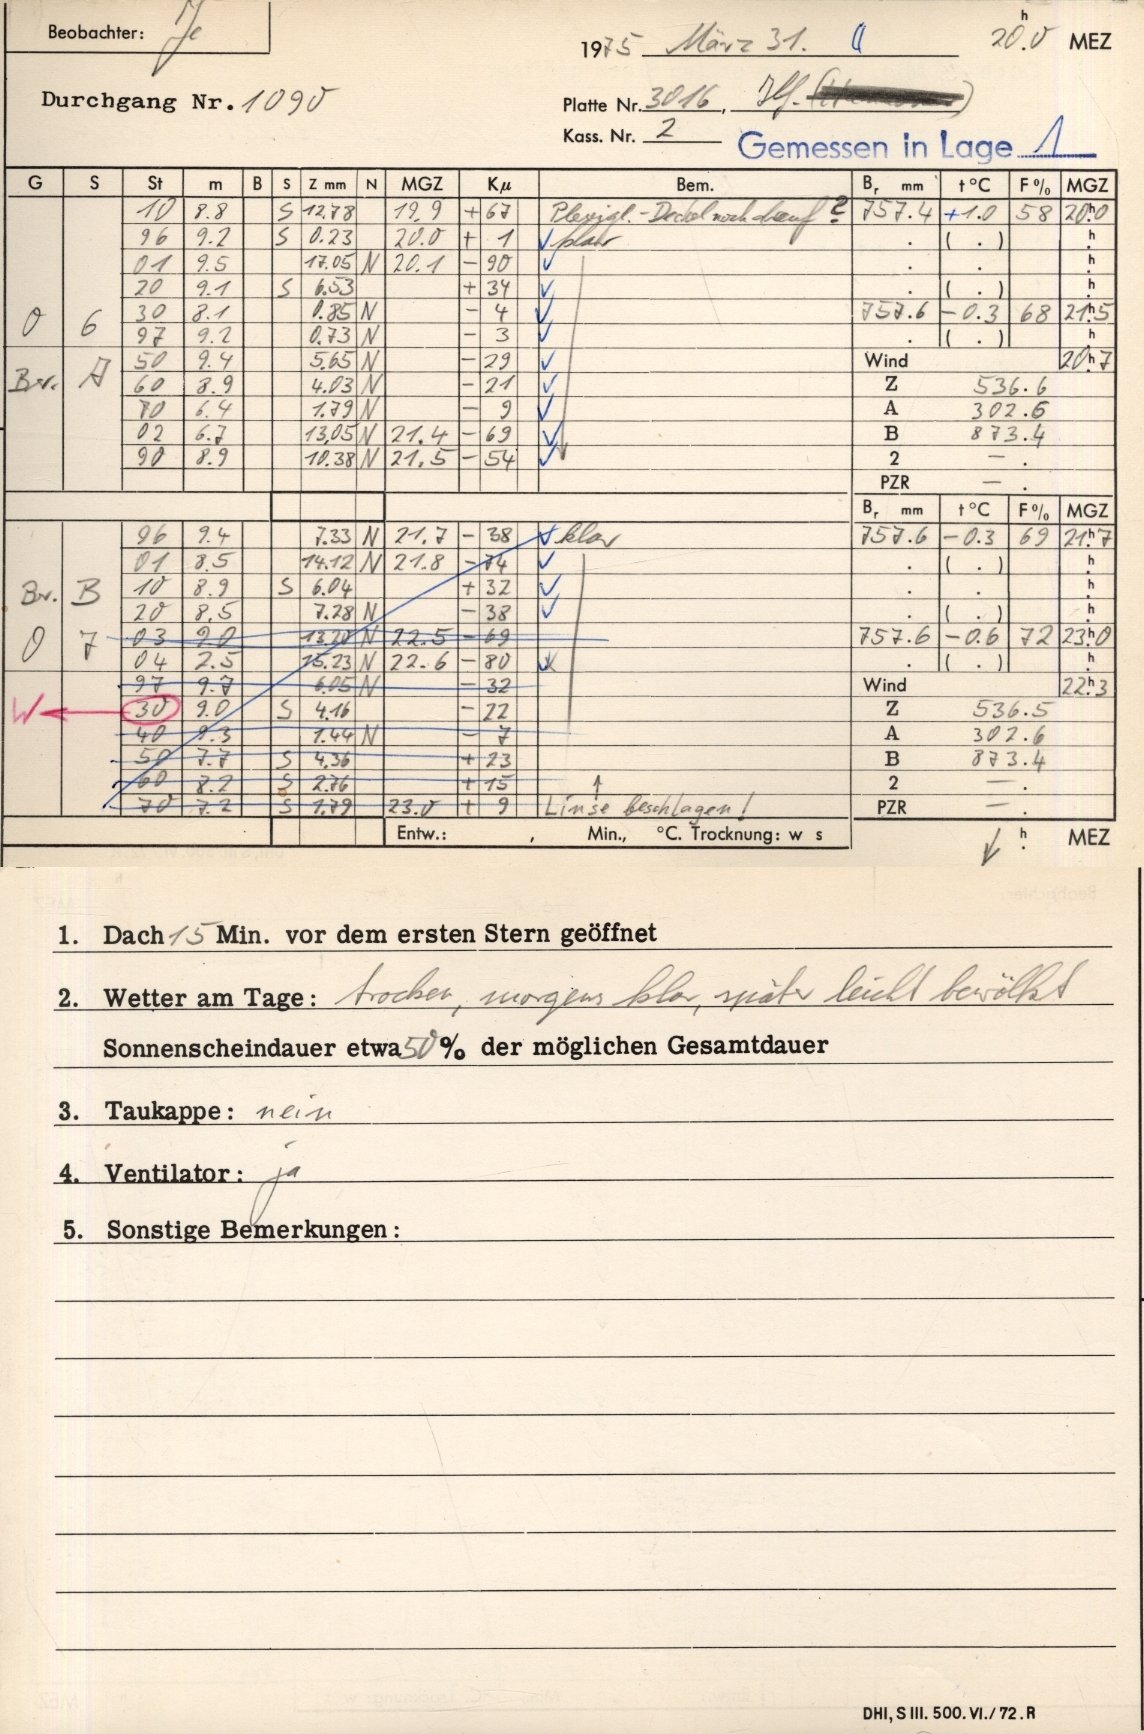 Beobachter: Je
1975 März 31. 20.0 h MEZ
Durchgang Nr. 1090
Platte Nr. 3016, Ilf.
Kass. Nr. 2
Gemessen in Lage 1
G S St m B S Z mm N MGZ Kμ Bem. Br mm t °C F % MGZ
10 8.8 S 12.78 19.9 +67 Plexigl.-Deckel noch drauf? 757.4 +1.0 58 20h0
96 9.2 S 0.23 20.0 + 1 ✓ klar . ( . ) h
01 9.5 17.05 N 20.1 - 90 ✓ . h
20 9.1 S 6.53 + 34 ✓ . ( . ) h
0 6 30 8.1 0.85 N - 4 ✓ 757.6 -0.3 68 21h5
97 9.2 0.73 N - 3 ✓ . ( . ) h
Br. A 50 9.4 5.65 N - 29 ✓ Wind 20h7
60 8.9 4.03 N - 21 ✓ Z 536.6
70 6.4 1.79 N - 9 ✓ A 302.6
02 6.7 13,05 N 21.4 - 69 ✓ B 873.4
90 8.9 10.38 N 21.5 - 54 ✓ 2 — .
PZR — .
Br mm t °C F % MGZ
96 9.4 7.33 N 21.7 - 38 ✓ klar 757.6 -0.3 69 21h7
01 8.5 14.12 N 21.8 - 74 ✓ . ( . ) h
Br. B 10 8.9 S 6.04 + 32 ✓ . h
20 8.5 7.28 N - 38 ✓ . ( . ) h
0 7 03 9.0 13.20 N 22.5 - 69 757.6 -0.6 72 23h0
04 2.5 15.23 N 22.6 - 80 . ( . ) h
97 9.7 6.05 N - 32 Wind 22h3
W ← 30 9.0 S 4.16 - 22 Z 536.5
40 9.3 1.44 N - 7 A 302.6
50 7.7 S 4.36 + 23 B 873.4
60 8.2 S 2.76 + 15 2 — .
70 7.2 S 1.79 23.0 + 9 Linse beschlagen! PZR — .
Entw.: , Min., °C. Trocknung: w s h MEZ
1. Dach 15 Min. vor dem ersten Stern geöffnet
2. Wetter am Tage: trocken, morgens klar, später leicht bewölkt
Sonnenscheindauer etwa 50 % der möglichen Gesamtdauer
3. Taukappe: nein
4. Ventilator: ja
5. Sonstige Bemerkungen:
DHI, S III. 500. VI./72. R